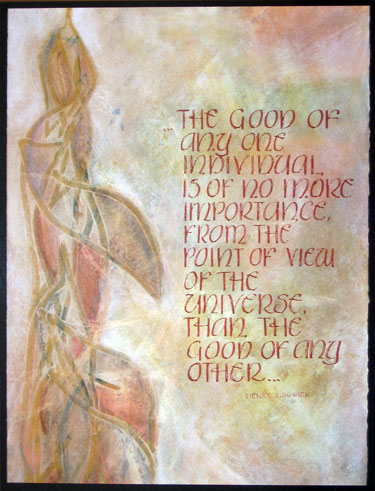 ...THE GOOD OF
ANY ONE
INDIVIDUAL,
IS OF NO MORE
IMPORTANCE,
FROM THE
POINT OF VIEW
OF THE
UNIVERSE,
THAN THE
GOOD OF ANY
OTHER...
HENRY SIDGWICK